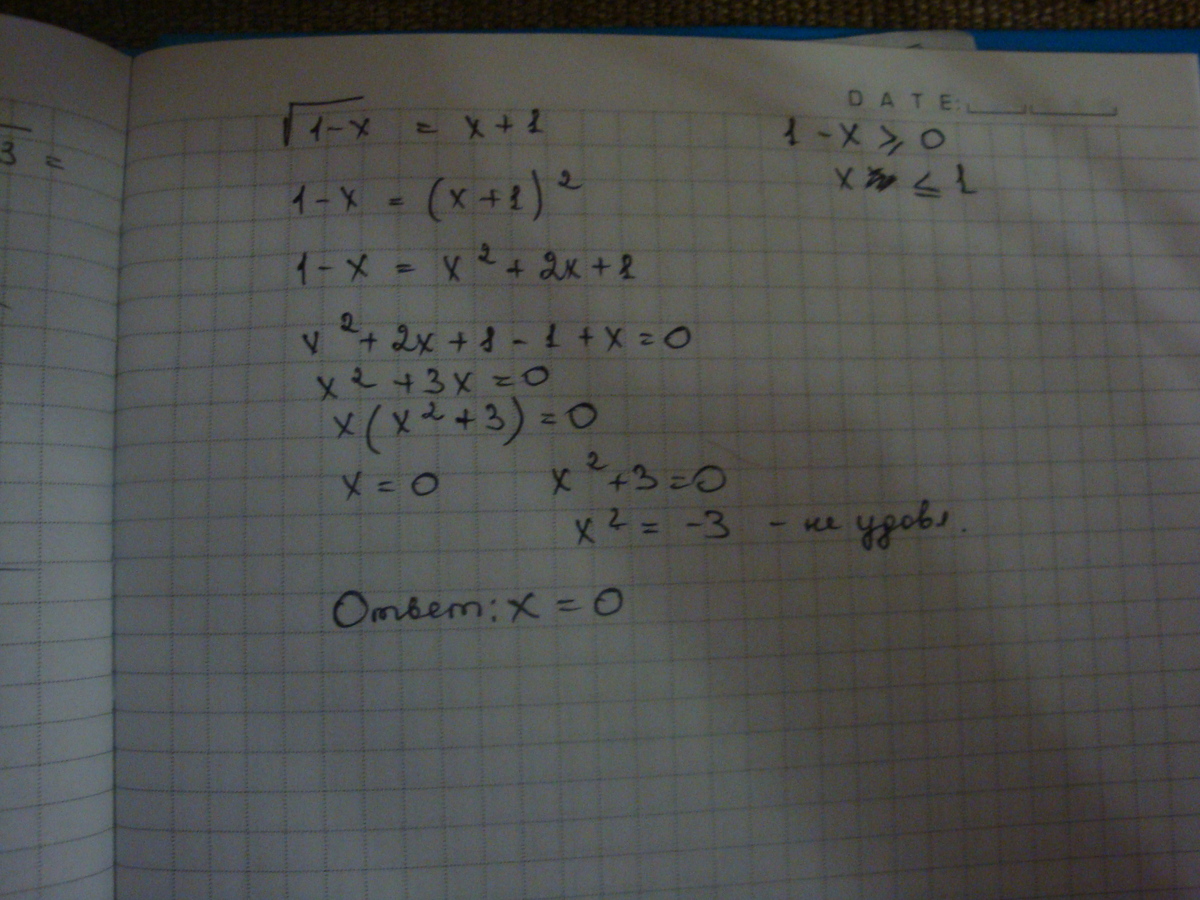 3 =
DATE:
√1-x = x+1
1-x ⩾ 0
x ≤ 1
1-x = (x+1)²
1-x = x²+2x+1
x²+2x+1-1+x=0
x²+3x=0
x(x²+3)=0
x=0 x²+3=0
x² = -3 - не удовл.
Ответ: x = 0